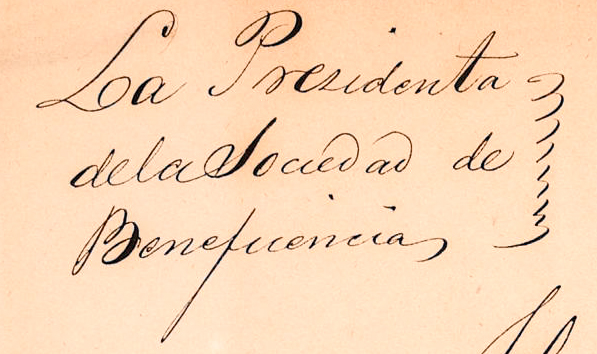 La Presidenta
de la Sociedad de
Beneficencia